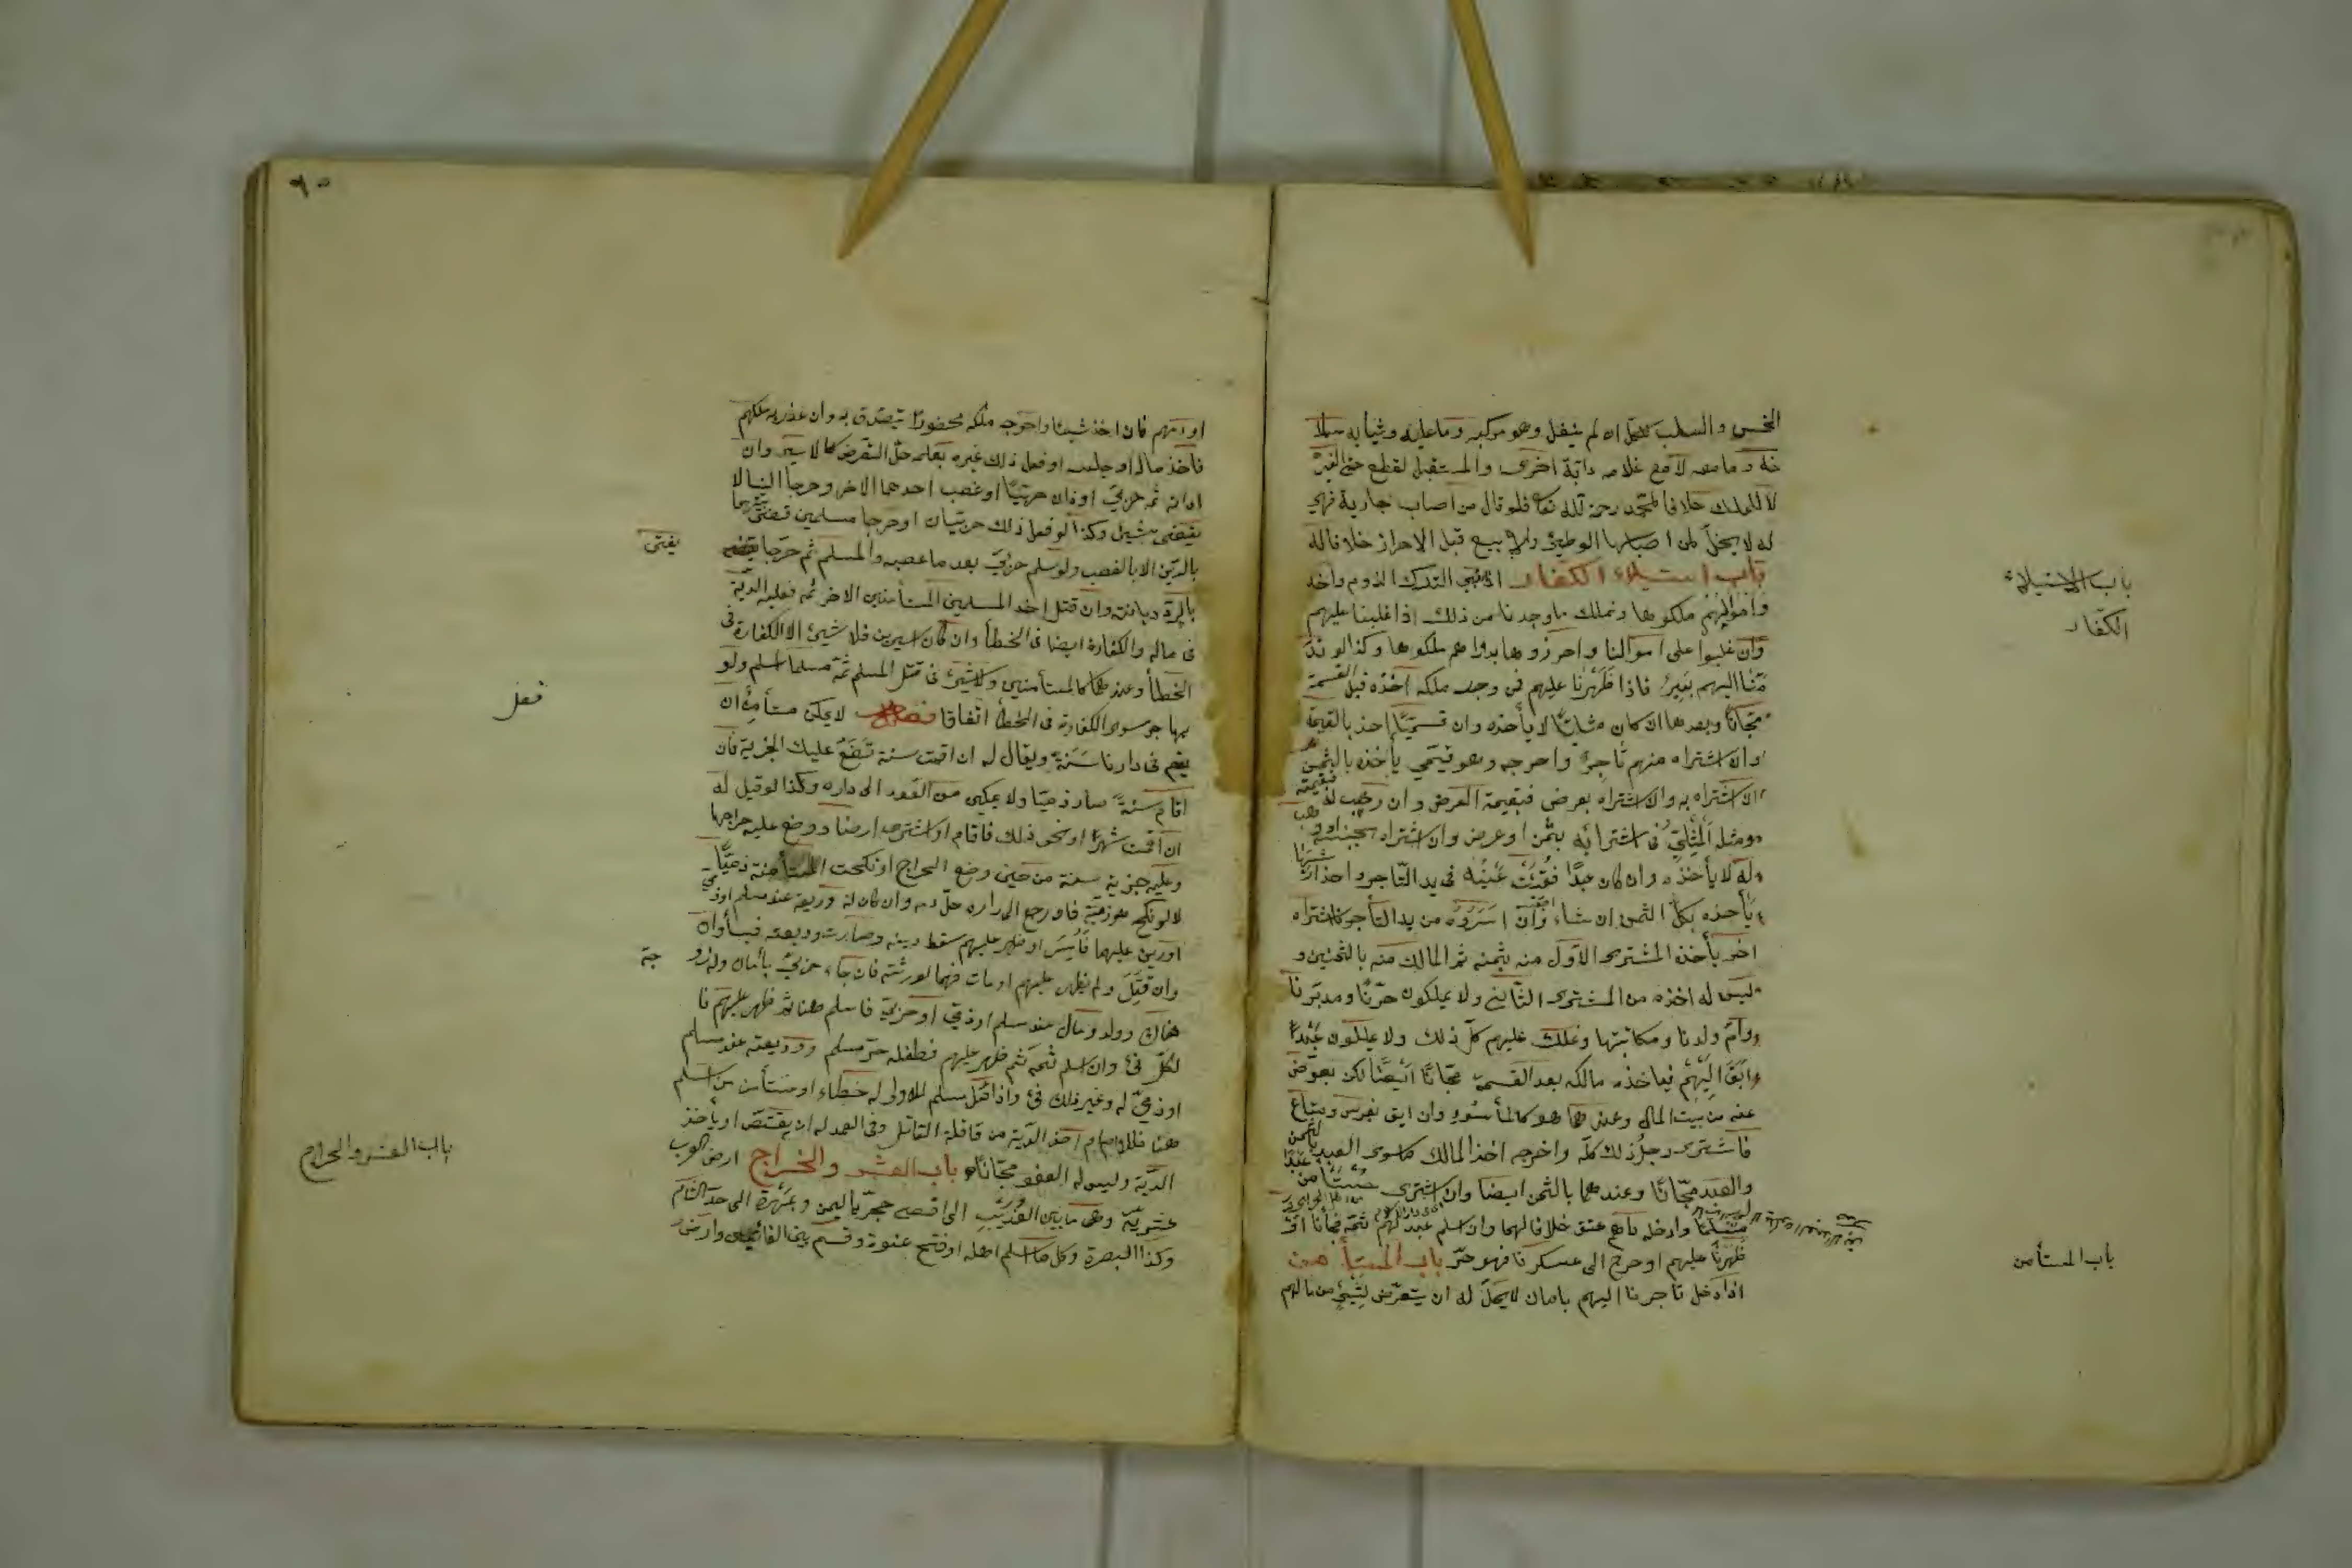 الخمس والسلب للكل ان لم ينفل وهو مركبه وما عليه وثيابه وسلا
حه وما معه لا مع غلامه دابة اخرى والتنفيل لقطع حق الغير
لا للملك خلافا لمحمد رحمه الله تعا فلو قال من اصاب جارية فهى
له لا يحل لمن اصابها الوطئ ولا بيع قبل الاحراز خلافا له
باب استيلاء الكفار اذا سبى الترك الروم واخذ
وا اموالهم ملكوها ونملك ما وجدنا من ذلك اذا غلبنا عليهم
وان غلبوا على اموالنا واحرزوها بدارهم ملكوها وكذا لو ند
منا اليهم بعير فاذا ظهرنا عليهم فمن وجد ملكه اخذه قبل القسمة
مجانا وبعدها ان كان مثليا لا يأخذه وان قيميا اخذ بالقيمة
وان اشتراه منهم تاجر واخرجه وهو قيمى يأخذه بالثمن
ان اشتراه به وان اشتراه بعرض فبقيمة العرض وان وهب له فبقيمته
ومثله المثلى فى اشترائه بثمن او عرض وان اشتراه بجنسه او وهب
له لا يأخذه وان كان عبدا ففقئت عينه فى يد التاجر واخذ ارشها
يأخذه بكل الثمن ان شاء وان اسروه من يد التاجر فاشتراه
اخر يأخذه المشترى الاول منه بثمنه ثم المالك منه بالثمنين و
ليس له اخذه من المشترى الثانى ولا يملكون حرنا ومدبرنا
وام ولدنا ومكاتبنا ونملك عليهم كل ذلك ولا يملكون عبدا
ابق اليهم فياخذه مالكه بعد القسمة مجانا ايضا لكن يعوض
عنه من بيت المال وعندهما هو كالمأسور وان ابق بفرس ومتاع
فاشترى رجل ذلك كله واخرجه اخذ المالك ما سوى العبد بالثمن
والعبد مجانا وعندهما بالثمن ايضا وان اشترى مستأمن عبدا
مسلما وادخله دارهم عتق خلافا لهما وان اسلم عبد لهم ثمه فجاءنا او
ظهرنا عليهم او خرج الى عسكرنا فهو حر باب المستأمن
اذا دخل تاجرنا اليهم بامان لا يحل له ان يتعرض لشئ من مالهم
باب الاستيلاء
الكفار
باب المستأمن
٩٥
او دمهم فان اخذ شيئا واخرجه ملكه محظورا فيتصدق به وان غدر به ملكهم
فاخذ ماله او حبسه او فعل ذلك غيره بعلمه حل التعرض كالاسير وان
ادانه ثمه حربى او ادان حربيا او غصب احدهما الاخر وخرجا الينا لا
يقضى بشئ وكذا لو فعل ذلك حربيان وخرجا مستأمنين وان خرجا مسلمين قضى بينهما
بالدين لا بالغصب ولو مسلم حربى بعد ما غصبه المسلم ثم خرجا
بالرد ديانة وان قتل احد المسلمين المستأمنين الاخر ثمه فعليه الدية
فى ماله والكفارة ايضا فى الخطأ وان كان اسيرين فلا شئ الا الكفارة فى
الخطأ وعندهما كالمستأمنين ولا شئ فى قتل المسلم ثمة مسلما اسلم ولو
يهاجر سوى الكفارة فى الخطأ اتفاقا فصل لا يمكن مستأمن ان
يقيم فى دارنا سنة ويقال له ان اقمت سنة نضع عليك الجزية فان
اقام سنة صار ذميا ولا يمكن من العود الى داره وكذا لو قيل له
ان اقمت شهرا او نحو ذلك فاقام او اشترى ارضا ووضع عليه خراجها
وعليه جزية سنة من حين وضع الخراج او نكحت المستأمنة ذميا
لا لو نكح هو ذمية فلو رجع الى داره حل دمه وان كان له وديعة عند مسلم او ذمى
او دين عليهما فاسر او ظهر عليهم سقط دينه وصارت وديعته فيئا وان
وان قتل ولم يظهر عليهم او مات فهما لورثته فان جاء حربى بامان وله زو
هناك وولد ومال عند مسلم او ذمى او حربى فاسلم هنا ثم ظهر عليهم فا
لكل فئ وان اسلم ثمه ثم ظهر عليهم فطفله حر مسلم ووديعته عند مسلم
او ذمى له وغير ذلك فئ واذا قتل مسلم لا ولى له خطاء او مستأمن اسلم
هنا فللامام اخذ الدية من عاقلة القاتل وفى العمد له ان يقتص او ياخذ
الدية وليس له العفو مجانا باب العشر والخراج ارض العرب
عشرية وهى ما بين العذيب الى اقصى حجر باليمن وبمهرة الى حد الشام
وكذا البصرة وكل ما اسلم اهله او فتح عنوة وقسم بين الغانمين وارض
يفتى
فصل
جة
باب العشر والخراج